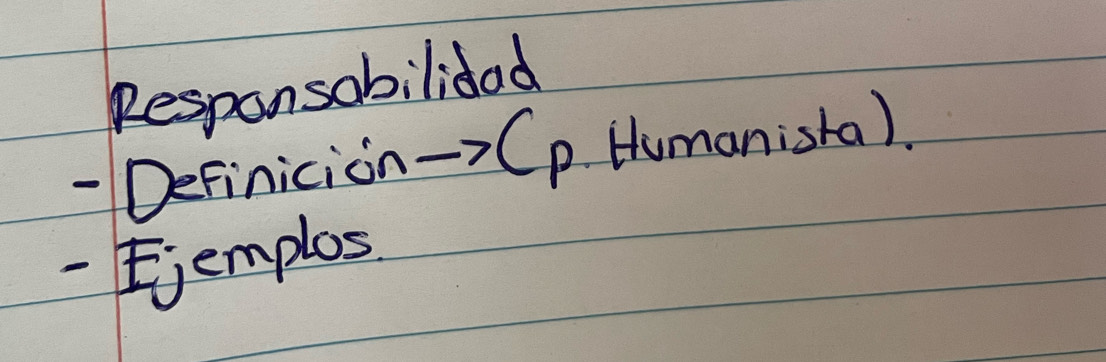 Responsabilidad
- Definición → (p. Humanista).
- Ejemplos.